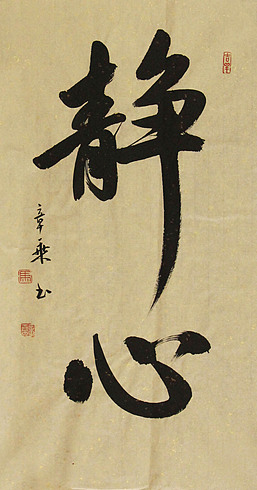 静心
章乘书